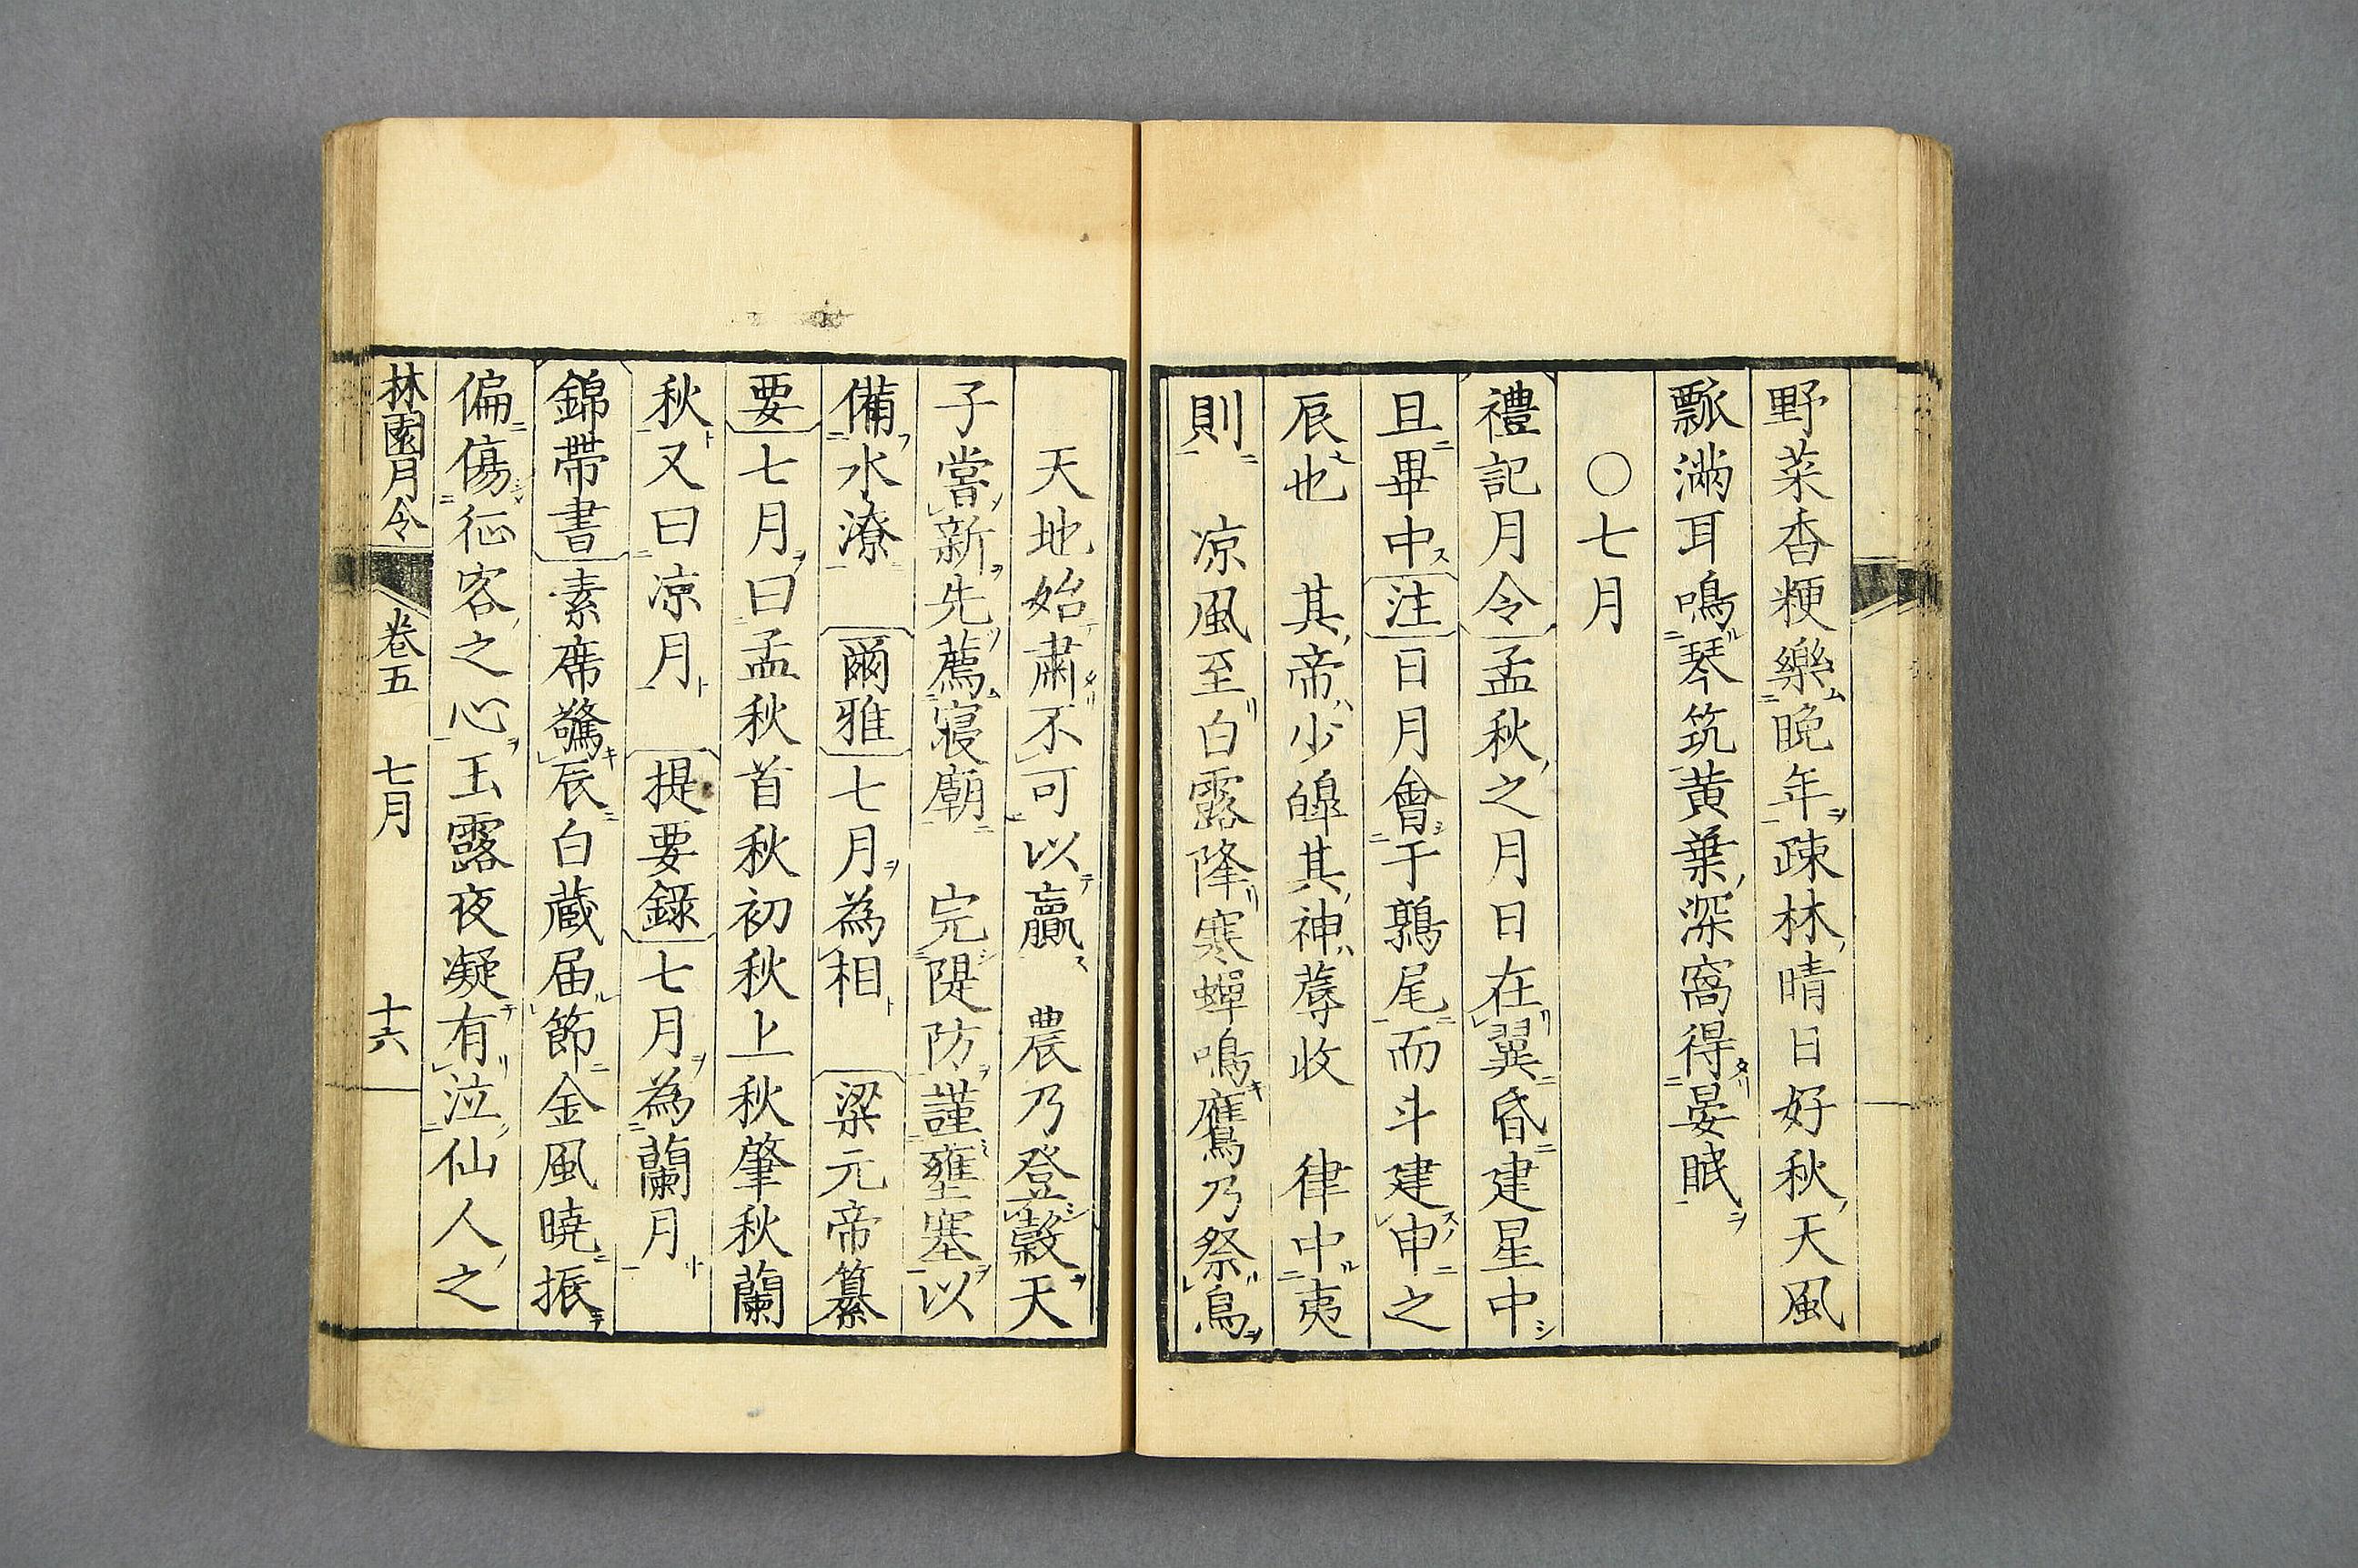 野菜香粳樂晩年疎林晴日好秋天風
瓢滿耳鳴琴筑黄葉深窩得晏眠
○七月
禮記月令孟秋之月日在翼昏建星中
旦畢中注日月會于鶉尾而斗建申之
辰也　其帝少皥其神蓐收　律中夷
則　凉風至白露降寒蟬鳴鷹乃祭鳥
天地始肅不可以贏　農乃登穀天
子嘗新先薦寝廟　完隄防謹壅塞以
備水潦　爾雅七月為相　梁元帝纂
要七月曰孟秋首秋初秋上秋肇秋蘭
秋又曰凉月　提要錄七月為蘭月
錦帶書素席驚辰白蔵届節金風暁振
偏傷征客之心玉露夜凝有泣仙人之
林園月令　卷五　七月　十六